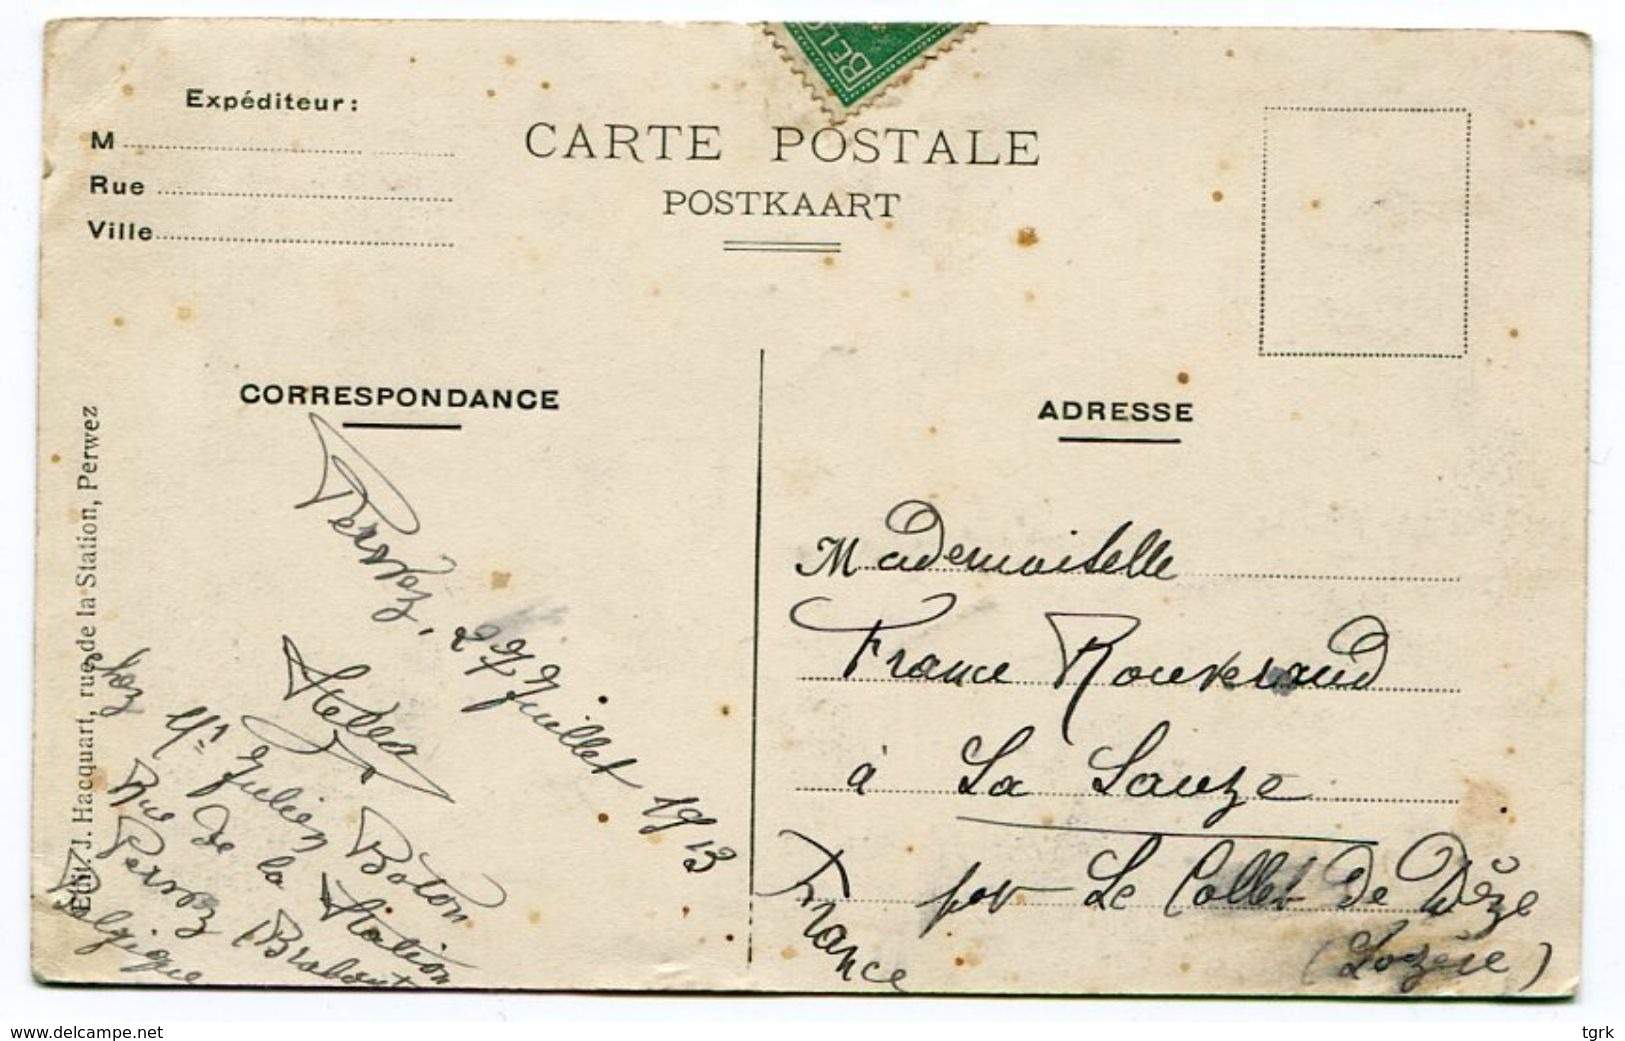 BELG
Expéditeur:
M
Rue
Ville
CARTE POSTALE
POSTKAART
CORRESPONDANCE
ADRESSE
Edit. J. Hacquart, rue de la Station, Perwez
Perwez, 27 Juillet 1913
chez Mr Julien Boton
Rue de la Station
Perwez (Brabant
Belgique
Mademoiselle
France Rouveraud
à La Sauze
par Le Collet de Dèze
(Lozère)
France
www.delcampe.net
tgrk